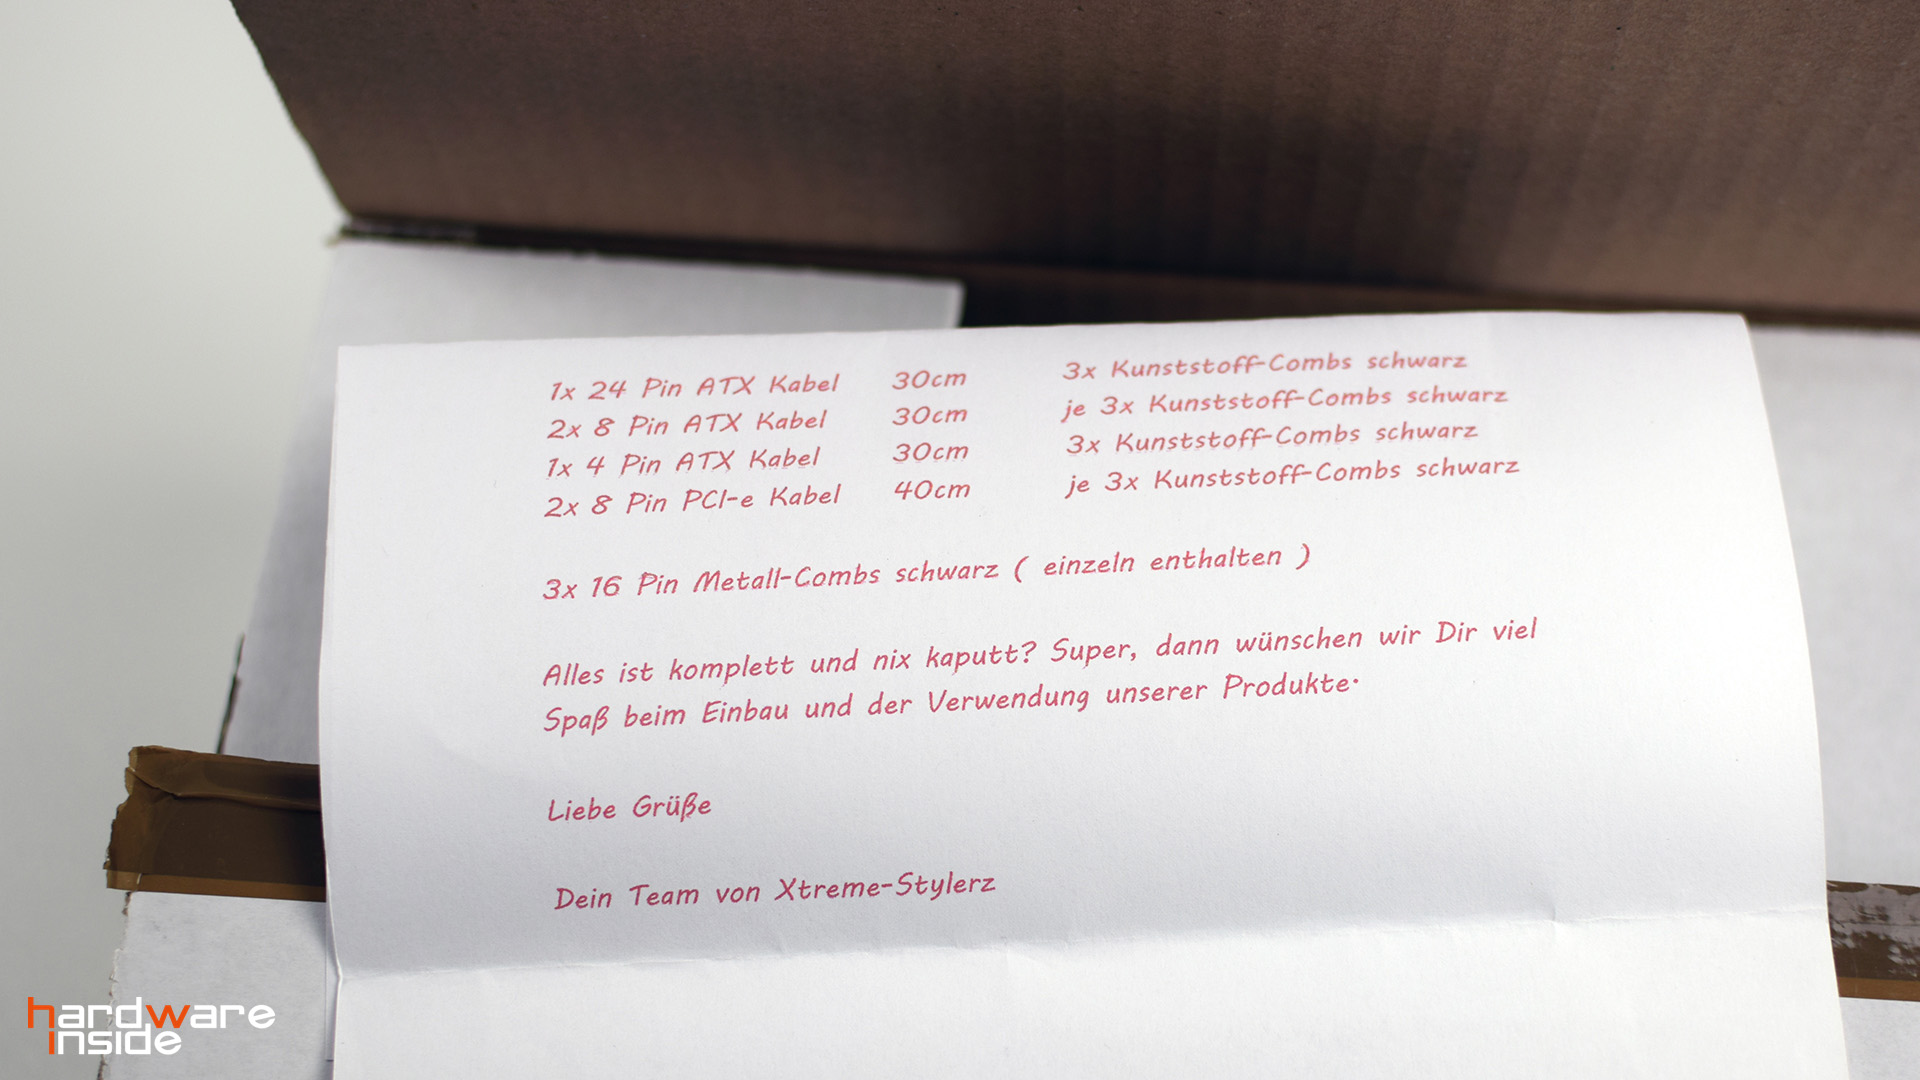 1x 24 Pin ATX Kabel 30cm 3x Kunststoff-Combs schwarz
2x 8 Pin ATX Kabel 30cm je 3x Kunststoff-Combs schwarz
1x 4 Pin ATX Kabel 30cm 3x Kunststoff-Combs schwarz
2x 8 Pin PCI-e Kabel 40cm je 3x Kunststoff-Combs schwarz
3x 16 Pin Metall-Combs schwarz ( einzeln enthalten )
Alles ist komplett und nix kaputt? Super, dann wünschen wir Dir viel
Spaß beim Einbau und der Verwendung unserer Produkte.
Liebe Grüße
Dein Team von Xtreme-Stylerz
hardware
inside